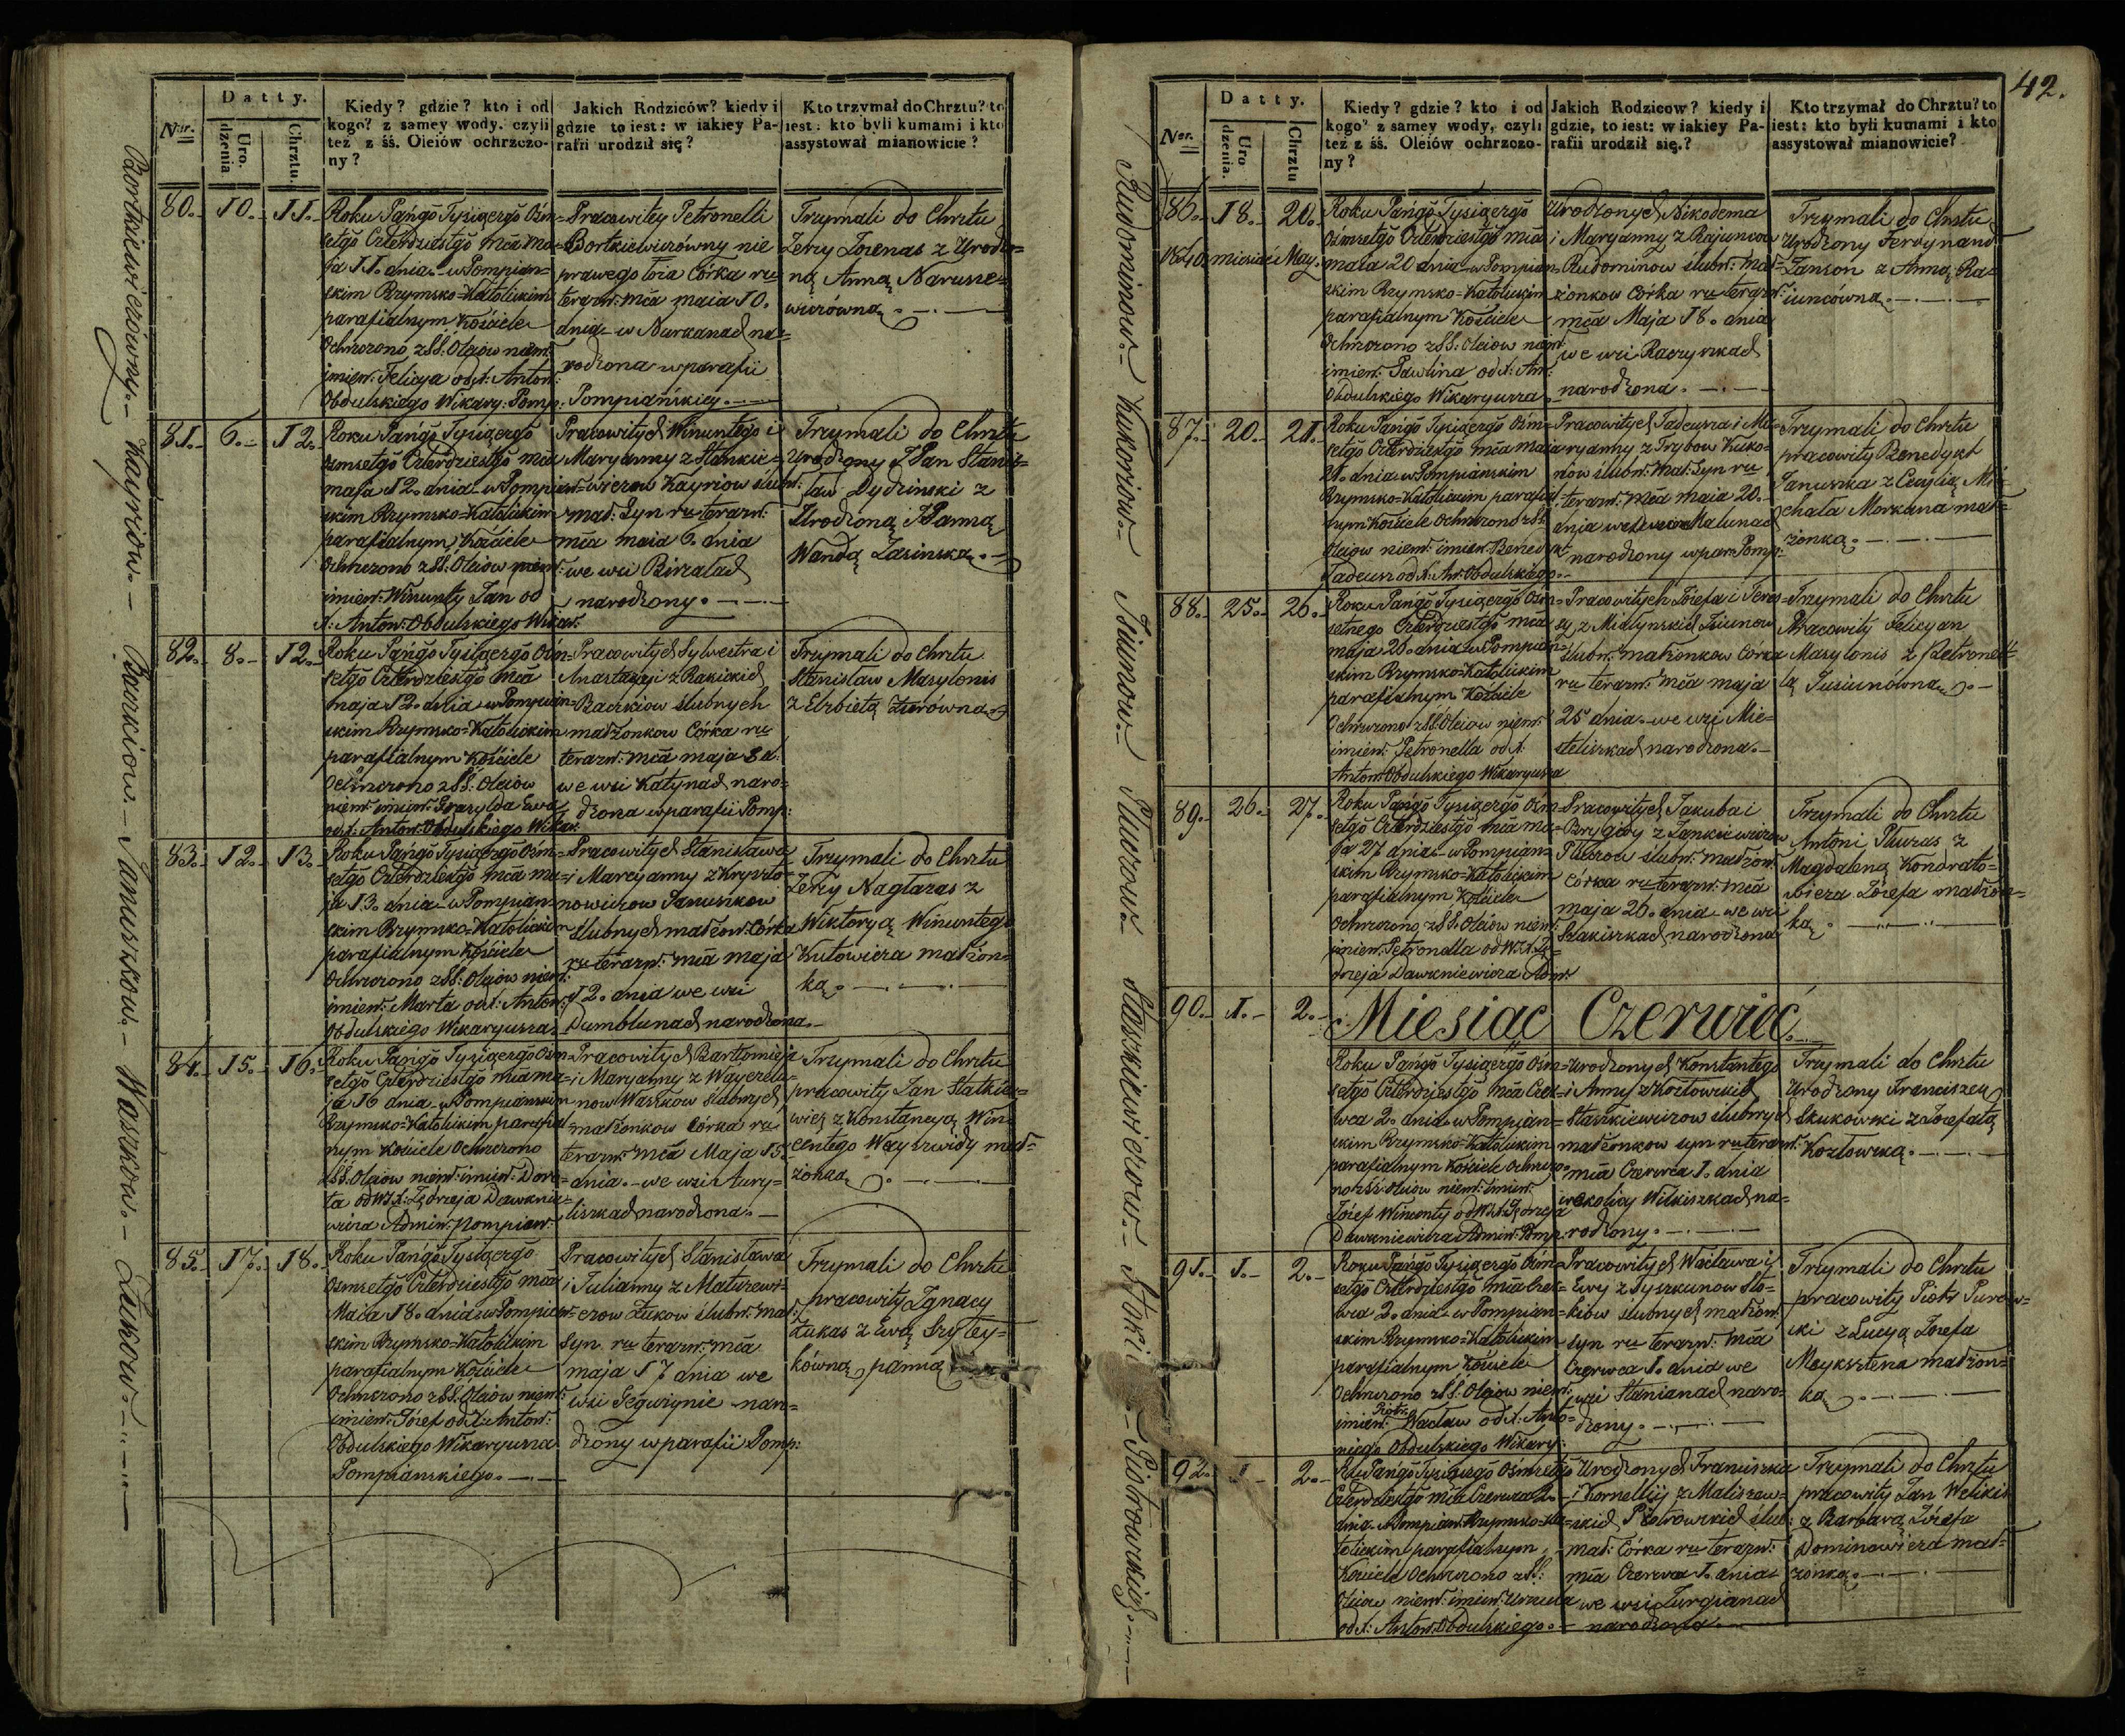 Datty.
Ner.
Uro-
dzenia
Chrztu.
Kiedy? gdzie? kto i od
kogo? z samey wody. czyli
też z śś. Oleiów ochrzczo-
ny?
Jakich Rodziców? kiedy i
gdzie to iest: w iakiey Pa-
rafii urodził się?
Kto trzymał do Chrztu? to
iest: kto byli kumami i kto
assystował mianowicie?
80. 10. 11.
Roku Pańgo Tysiącgo Ośm-
setgo Czterdziestgo mca Ma-
ja 11. dnia w Pompian-
skim Rzymsko-Katolickim
parafialnym Kościele
Ochrzczono z SS: Oleiow niem:
imien: Felicya od X: Anton:
Obdulskiego Wikary: Pomp:
Pracowitey Petronelli
Bortkiewiczówny nie
prawego łoża Córka ru
terazn: mca maia 10.
dnia w na-
rodzona w parafii
Pompiańskiey.
Trzymali do Chrztu
Jerzy z Urodzo-
ną Anną Narusze-
wiczówną.
81. 6. 12.
Roku Pańgo Tysiącgo
Osmsetgo Czterdziestgo mca
maja 12. dnia w Pompian-
skim Rzymsko-Katolickim
parafialnym Kościele
Ochrzczono z SS: Oleiow niem:
imien: Wincenty Jan od
X: Anton: Obdulskiego Wikar:
Pracowitych Wincentego i
Maryanny z Stankie-
wiczow Kayriow slubn:
mał: Syn ru terazn:
mca maia 6. dnia
we wsi Birzałach
narodzony.
Trzymali do Chrztu
Urodzony JPan Stanis-
ław Dydzinski z
Urodzoną JPanną
Wandą Zasinską.
82. 8. 12.
Roku Pańgo Tysiącgo Ośm-
setgo Czterdziestgo mca
maja 12. dnia w Pompian-
skim Rzymsko-Katolickim
parafialnym Kościele
Ochrzczono z SS: Oleiow
niem: imien: Gryzylda Ewa
od X: Anton: Obdulskiego Wikar:
Pracowitych Sylwestra i
Anastazyi z Rakickich
slubnych
małżonkow Córka ru
terazn: mca maja 8 d:
we wsi Katynach naro-
dzona w parafii Pomp:
Trzymali do Chrztu
Stanisław Masylonis
z Elzbietą
83. 12. 13.
Roku Pańgo Tysiącgo Ośm-
setgo Czterdziestgo mca ma-
ja 13. dnia w Pompian-
skim Rzymsko-Katolickim
parafialnym Kościele
Ochrzczono z SS: Oleiow niem:
imien: Marta od X: Anton:
Obdulskiego Wikaryusza
Pracowitych Stanisława
i Maryanny z Krysztо-
nowiczow Januszkow
slubnych małżon: Córka
ru terazn: mca maja
12. dnia we wsi
Dumblunach narodzona.
Trzymali do Chrztu
Jerzy Nagłazas z
Wiktoryą Wincentego
Kutowicza małżon-
ką.
84. 15. 16.
Roku Pańgo Tysiącgo Ośm-
setgo Czterdziestgo mca ma-
ja 16 dnia w Pompianskim
Rzymsko-Katolickim parafial-
nym Kościele Ochrzczono
z SS. Oleiow niem: imien: Doro-
ta od WJX: Jędrzeja Dawknie-
wicza Admin: Pompian:
Pracowitych Bartłomieja
i Maryanny z
now Waszkow slubnych
małżonkow Córka ru
terazn: mca Maja 15.
dnia. we wsi Aury-
liszkach narodzona.
Trzymali do Chrztu
pracowity Jan Statkie-
wicz z Konstancyą Win-
centego mał-
żonką.
85. 17. 18.
Roku Pańgo Tysiącgo
Osmsetgo Czterdziestgo mca
Maia 18. dnia w Pompian-
skim Rzymsko-Katolickim
parafialnym Kościele
Ochrzczono z SS. Oleiow niem:
imien: Józef od X: Anton:
Obdulskiego Wikaryusza
Pompianskiego.
Pracowitych Stanisława
i Julianny z Matuzewi-
czow Żukow slubn: mał:
Syn ru terazn: mca
maja 17 dnia we
wsi Gegużynie naro-
dzony w parafii Pomp:
Trzymali do Chrztu
pracowity Ignacy
Żukas z Ewą Szyley-
kówną panną
Bortkiewiczówny. Kayriow. Januszkow. Waszkow. Żukow.
42.
Datty.
Ner.
Uro
dzenia.
Chrztu
Kiedy? gdzie? kto i od
kogo? z samey wody, czyli
też z śś. Oleiów ochrzczo-
ny?
Jakich Rodzicow? kiedy i
gdzie, to iest: w iakiey Pa-
rafii urodził się.?
Kto trzymał do Chrztu? to
iest: kto byli kumami i kto
assystował mianowicie?
86. 18. 20.
1840 miesiąc May.
Roku Pańgo Tysiącgo
Ośmsetgo Czterdziestgo mca
maia 20 dnia w Pompian-
skim Rzymsko-Katolickim
parafialnym Kościele
Ochrzczono z SS: Oleiow niem:
imien: Pawlina od X: Ant:
Obdulskiego Wikaryusza
Urodzonych Nikodema
i Maryanny z Rajuncow
Rudominow slubn: mał-
żonkow Córka ru terazn:
mca Maja 18. dnia
we wsi Raczyszkach
narodzona.
Trzymali do Chrztu
Urodzony Ferdynand
Janson z Anną Ra-
iuncówną.
87. 20. 21.
Roku Pańgo Tysiącgo Ośm-
setgo Czterdziestgo mca maja
21. dnia w Pompianskim
Rzymsko-Katolickim parafial-
nym Kościele Ochrzczono z SS:
Oleiow niem: imien: Benedykt
Tadeusz od X: An: Obdulskiego.
Pracowitych Tadeusza i Ma-
ryanny z Trybow Kuko-
riow slubn: mał: Syn ru
terazn: mca maia 20.
dnia we wsi Malunach
narodzony w par: Pomp:
Trzymali do Chrztu
pracowity Benedykt
Januszka z Cecylią Mi-
chała Morkuna mał-
żonką.
88. 25. 26.
Roku Pańgo Tysiącgo Ośm-
setnego Czterdziestgo mca
maja 26. dnia w Pompian-
skim Rzymsko-Katolickim
parafialnym Kościele
Ochrzczono z SS: Oleiow niem:
imien: Petronella od X:
Anton: Obdulskiego Wikaryusza
Pracowitych Józefa i Teres-
sy z Mialynskich Jsiunow
slubn: małżonkow Córka
ru terazn: mca maja
25 dnia. we wsi Mie-
steliszkach narodzona.
Trzymali do Chrztu
Pracowity Felicyan
Masylonis z Petronel-
lą Jusiunówną.
89. 26. 27.
Roku Pańgo Tysiącgo Ośm-
setgo Czterdziestgo mca ma-
ja 27 dnia. w Pompian-
skim Rzymsko-Katolickim
parafialnym Kościele
Ochrzczono z SS. Oleiow niem:
imien: Petronella od WJX: Ję-
drzeja Dawkniewicza Adm:
Pracowitych Jakuba i
Brygidy z Jankiewiczow
slubn: małżon:
Córka ru terazn: mca
maja 26. dnia we wsi
Szakiszkach narodzona
Trzymali do Chrztu
Antoni z
Magdaleną Kondrato-
wicza Józefa małżon-
ką.
90. 1. 2.
Miesiąc Czerwiec.
Roku Pańgo Tysiącgo Ośm-
setgo Czterdziestgo mca Czer-
wca 2. dnia w Pompian-
skim Rzymsko-Katolickim
parafialnym Kościele Ochrzczo-
no z śś: Oleiow niem: imien:
Józef Wincenty od WJX Jędrzeja
Dawkniewicza Admin: Pomp:
Urodzonych Konstantego
i Anny z Kozłowskich
Staszkiewiczow slubnych
małżonkow syn ru terazn:
mca Czerwca 1. dnia
w okolicy Wilkiszkach na-
rodzony.
Trzymali do Chrztu
Urodzony Franciszek
Skukowski z Jozefatą
Kozłowską.
91. 1. 2.
Roku Pańgo Tysiącgo Ośm-
setgo Czterdziestgo mca Czer-
wca 2. dnia w Pompian-
skim Rzymsko-Katolickim
parafialnym Kościele
Ochrzczono z SS: Oleiow niem:
Piotr
imien: Wacław od X: Anto-
niego Obdulskiego Wikary:
Pracowitych Wacława i
Ewy z Tyszkunow Sto-
kiow slubnych małżon:
syn ru terazn: mca
Czerwca 1. dnia we
wsi Stanianach naro-
dzony.
Trzymali do Chrztu
pracowity Piotr
z Lucyą Józefa
Meyksztena małżon-
ką.
92. 1 2.
Rku Pańgo Tysiącgo Ośmsetgo
Czterdziestgo mca Czerwca 2.
dnia w Pompian: Rzymsko-Ka-
tolickim parafialnym
Kościele Ochrzczono z SS:
Oleiow niem: imien: Urszula
od X: Anton: Obdulskiego.
Urodzonych Franciszka
i Kornellij z Maliszew-
skich Piotrowskich slub:
mał: Córka ru terazn:
mca Czerwca 1. dnia
we wsi Jurgianach
narodzona.
Trzymali do Chrztu
pracowity Jan Welikis
z Barbarą Józefa
Dominowicza mał-
żonką.
Rudominow. Kukoriow. Jsiunow. Staszkiewiczow. Stokiow. Piotrowskich.